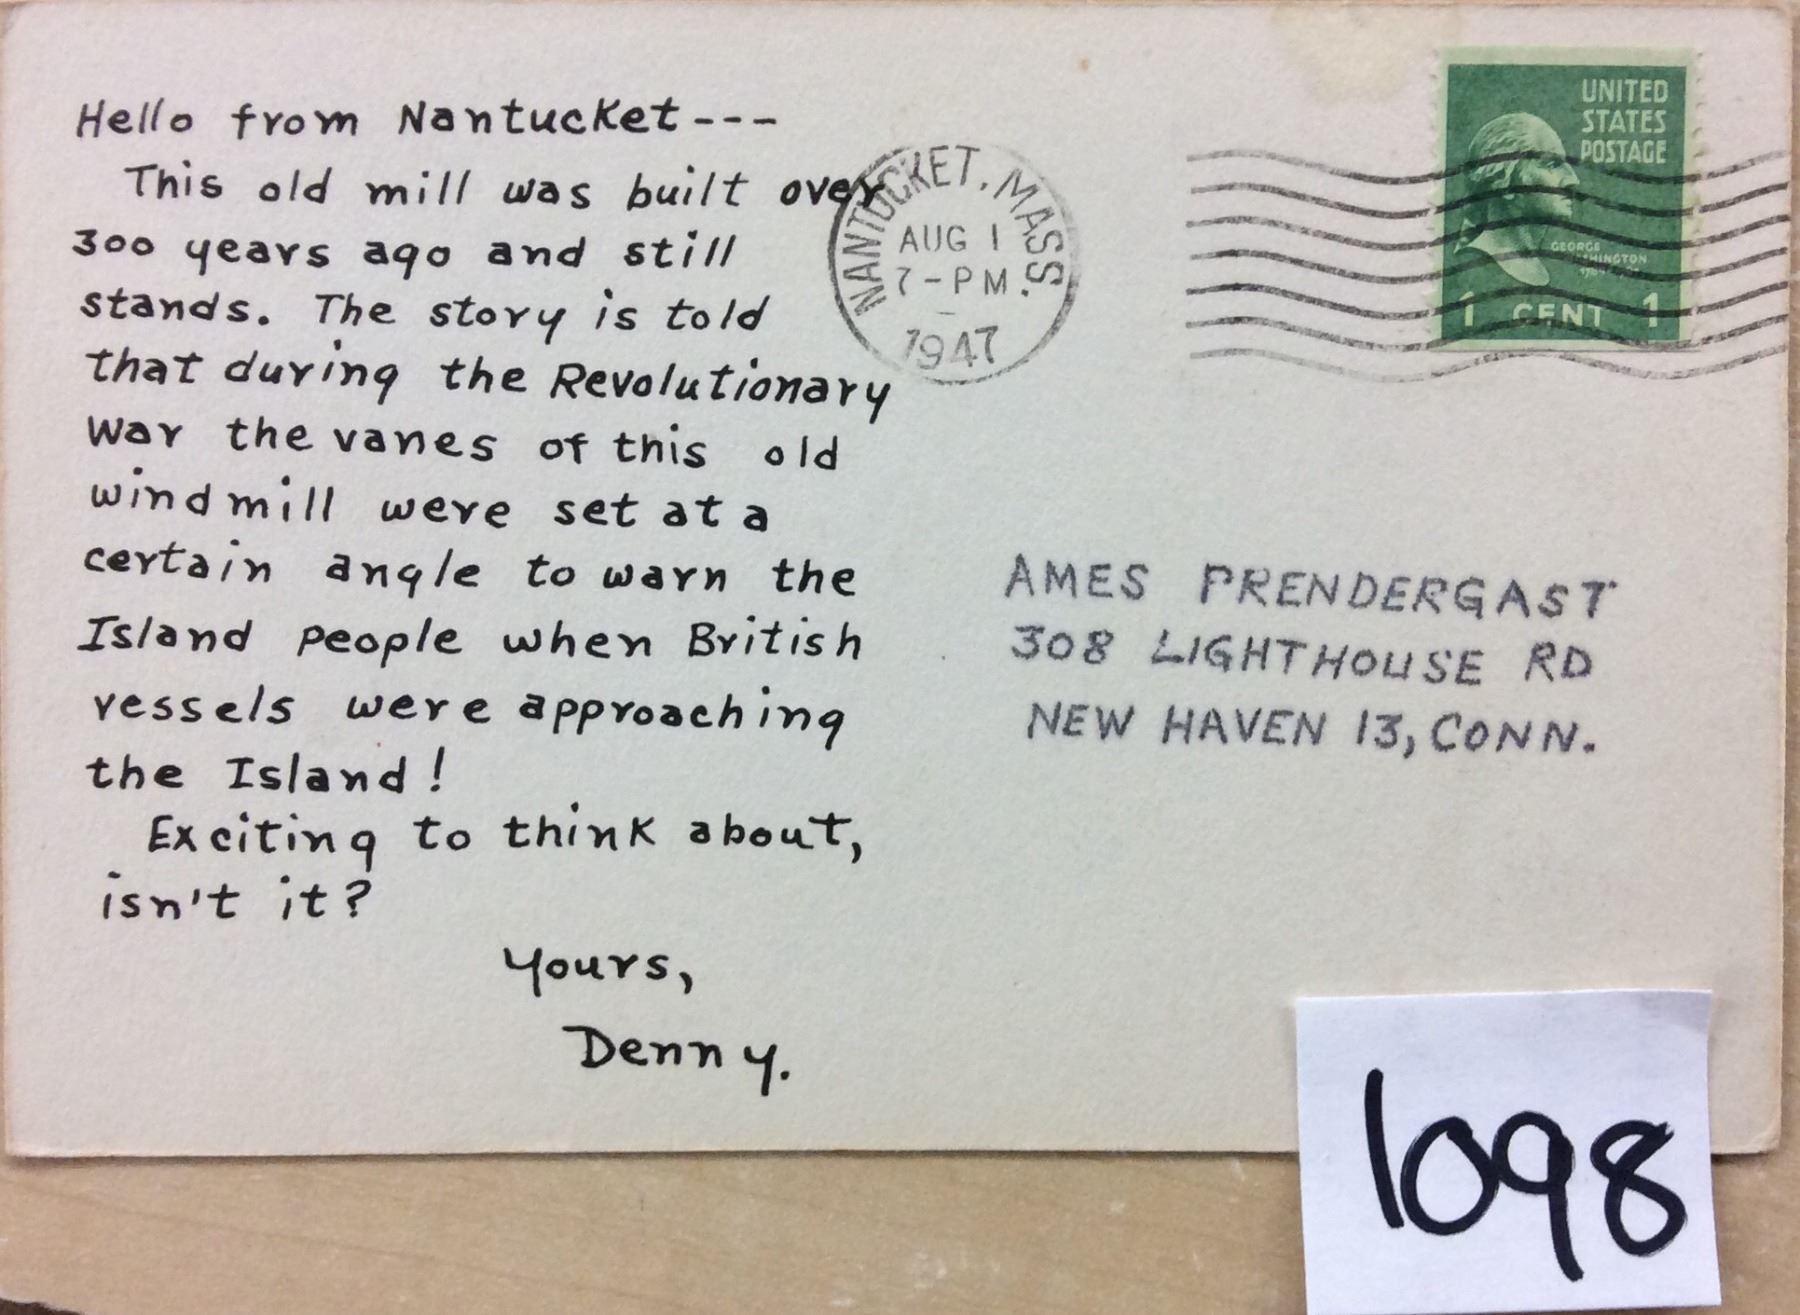 Hello from Nantucket---
This old mill was built over
300 years ago and still
stands. The story is told
that during the Revolutionary
War the vanes of this old
windmill were set at a
certain angle to warn the
Island people when British
vessels were approaching
the Island!
Exciting to think about,
isn't it?
Yours,
Denny.
NANTUCKET, MASS.
AUG 1
7-PM
1947
UNITED
STATES
POSTAGE
GEORGE
1 CENT 1
AMES PRENDERGAST
308 LIGHTHOUSE RD
NEW HAVEN 13, CONN.
1098